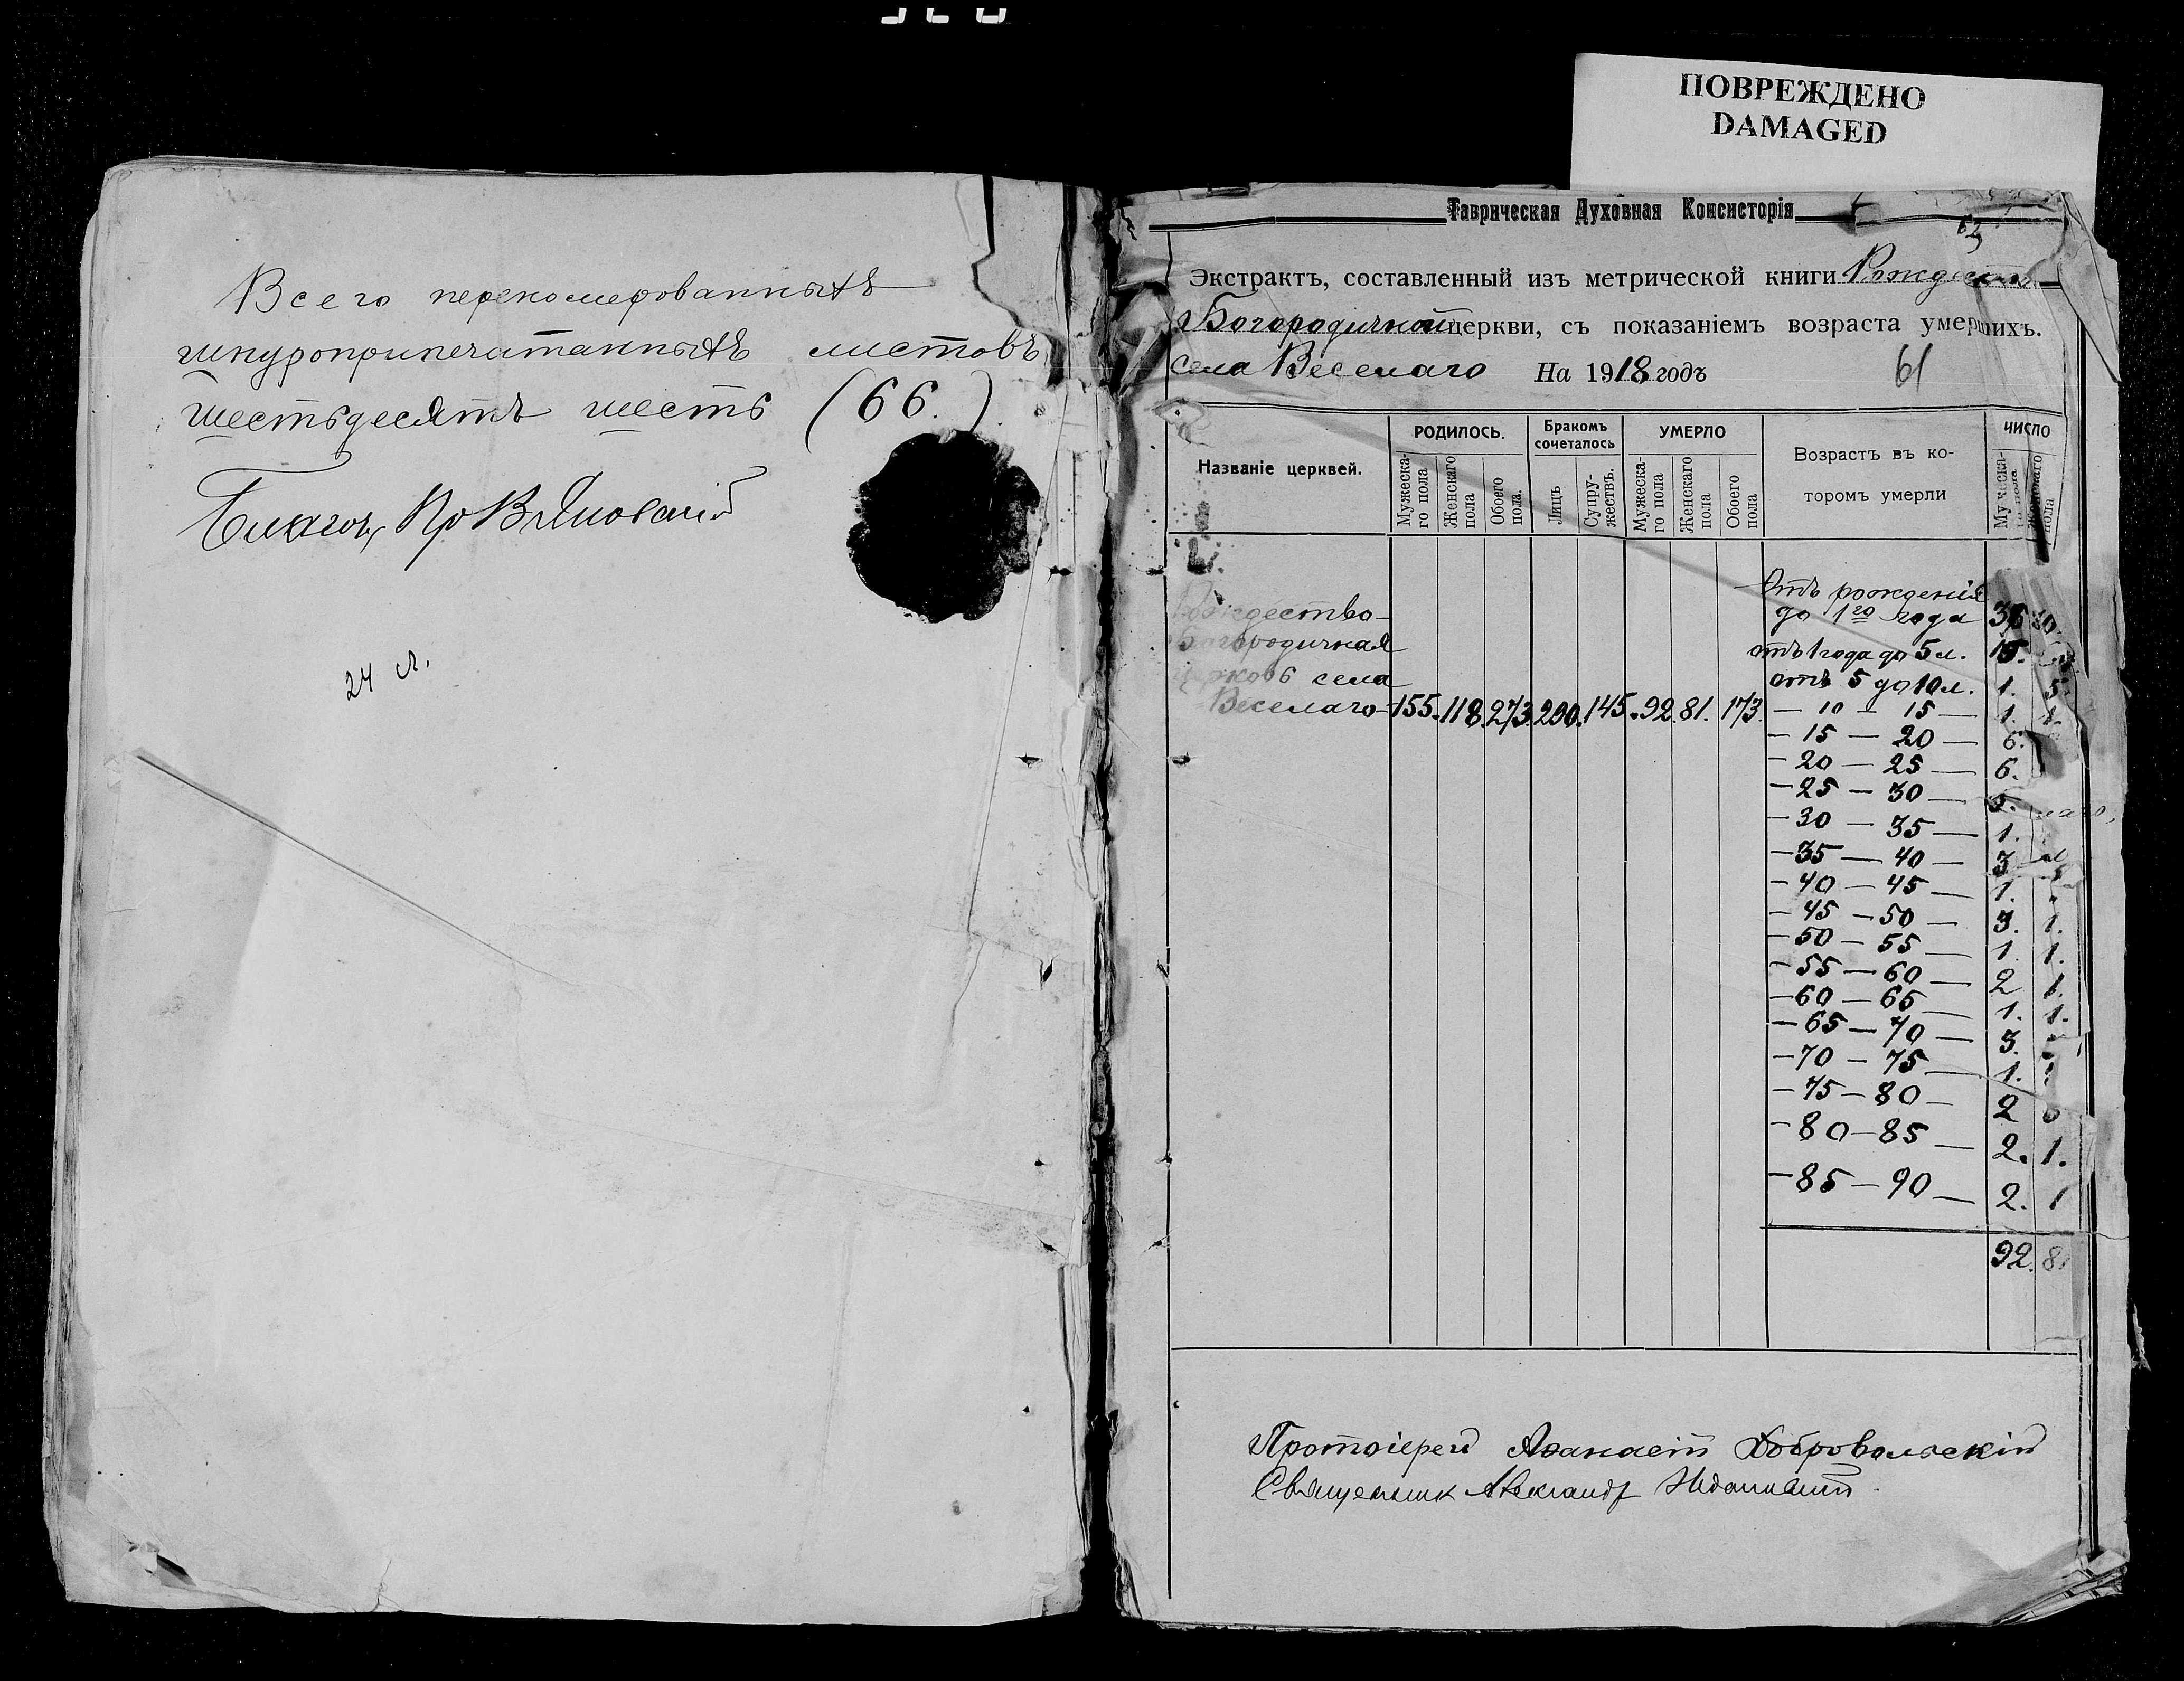 ПОВРЕЖДЕНО
DAMAGED
Всего переномерованныхъ
шнуроприпечатанныхъ листовъ
шестьдесятъ шесть (66.)
24 л.
Таврическая Духовная Консисторія
Экстрактъ, составленный изъ метрической книги Рождество
Богородичной церкви, съ показаніемъ возраста умершихъ.
села Веселаго На 1918 годъ
61
Названіе церквей.
РОДИЛОСЬ.
Мужеска-го пола
Женскаго пола
Обоего пола.
Бракомъ сочеталось
Лицъ
Супру-жествъ.
УМЕРЛО
Мужеска-го пола
Женскаго пола
Обоего пола
Возрастъ въ ко-
торомъ умерли
ЧИСЛО
Мужеска-го пола
Женскаго пола
Рождество-
Богородичная
церковь села
Веселаго 155. 118. 273. 290. 145. 92. 81. 173.
Отъ рожденія
до 1го года 36
отъ 1 года до 5 л. 15.
отъ 5 до 10 л. 1. 5.
— 10 — 15 — 1.
— 15 — 20 — 6.
— 20 — 25 — 6.
— 25 — 30 —
— 30 — 35 — 1.
— 35 — 40 — 3
— 40 — 45 — 1.
— 45 — 50 — 3. 1.
— 50 — 55 — 1. 1.
— 55 — 60 — 2 1.
— 60 — 65 — 1. 1.
— 65 — 70 — 3.
— 70 — 75 — 1.
— 75 — 80 — 2
— 80 — 85 — 2. 1.
— 85 — 90 — 2. 1
92. 81
Протоіерей Аѳанасій Добровольскій
Священникъ Александр